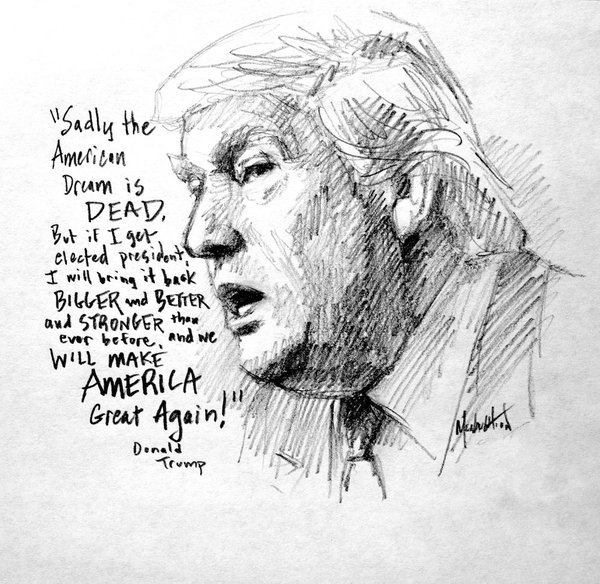 "Sadly the
American
Dream is
DEAD.
But if I get
elected president,
I will bring it back
BIGGER and BETTER
and STRONGER than
ever before, and we
WILL MAKE
AMERICA
Great Again!"
Donald
Trump